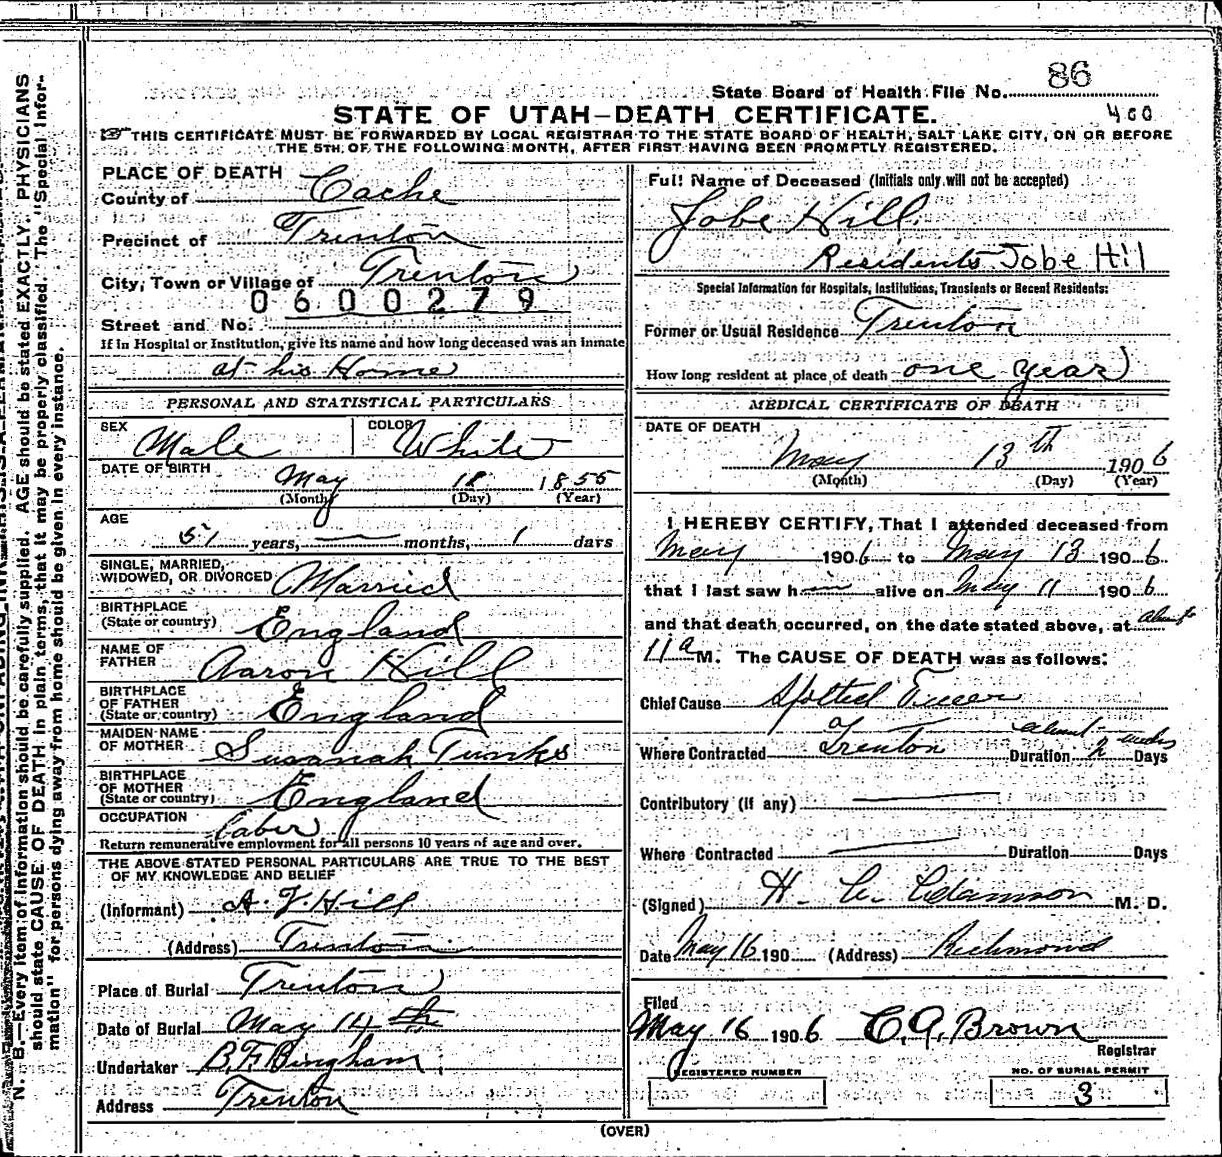 State Board of Health File No. 86
STATE OF UTAH—DEATH CERTIFICATE.
400
THIS CERTIFICATE MUST BE FORWARDED BY LOCAL REGISTRAR TO THE STATE BOARD OF HEALTH, SALT LAKE CITY, ON OR BEFORE
THE 5TH OF THE FOLLOWING MONTH, AFTER FIRST HAVING BEEN PROMPTLY REGISTERED.
PLACE OF DEATH
County of Cache
Precinct of Trenton
City, Town or Village of Trenton
0600279
Street and No.
If in Hospital or Institution, give its name and how long deceased was an inmate
at his Home
PERSONAL AND STATISTICAL PARTICULARS
SEX Male COLOR White
DATE OF BIRTH
May 18 1855
(Month) (Day) (Year)
AGE
51 years, — months, 1 days
SINGLE, MARRIED,
WIDOWED, OR DIVORCED Married
BIRTHPLACE
(State or country) England
NAME OF
FATHER Aaron Hill
BIRTHPLACE
OF FATHER
(State or country) England
MAIDEN NAME
OF MOTHER Susanah Tunks
BIRTHPLACE
OF MOTHER
(State or country) England
OCCUPATION
Laber
Return remunerative employment for all persons 10 years of age and over.
THE ABOVE STATED PERSONAL PARTICULARS ARE TRUE TO THE BEST
OF MY KNOWLEDGE AND BELIEF
(Informant) A. J. Hill
(Address) Trenton
Place of Burial Trenton
Date of Burial May 14 th
Undertaker B. F. Bingham
Address Trenton
Full Name of Deceased (Initials only will not be accepted)
Jobe Hill
Residents Jobe Hil
Special Information for Hospitals, Institutions, Transients or Recent Residents:
Former or Usual Residence Trenton
How long resident at place of death one year
MEDICAL CERTIFICATE OF DEATH
DATE OF DEATH
May 13th 1906
(Month) (Day) (Year)
I HEREBY CERTIFY, That I attended deceased from
May 1906 to May 13 1906
that I last saw h alive on May 11 1906
and that death occurred, on the date stated above, at about
11 a M. The CAUSE OF DEATH was as follows:
Chief Cause Spotted Fever
Where Contracted Trenton Duration about 2 weeks Days
Contributory (if any) —
Where Contracted — Duration Days
(Signed) H. C. Adamson M. D.
Date May 16 190 (Address) Richmond
Filed
May 16 1906 C. A. Brown
Registrar
REGISTERED NUMBER
NO. OF BURIAL PERMIT
3
(OVER)
N. B.—Every item of information should be carefully supplied. AGE should be stated EXACTLY. PHYSICIANS
should state CAUSE OF DEATH in plain terms, that it may be properly classified. The "Special Infor-
mation" for persons dying away from home should be given in every instance.